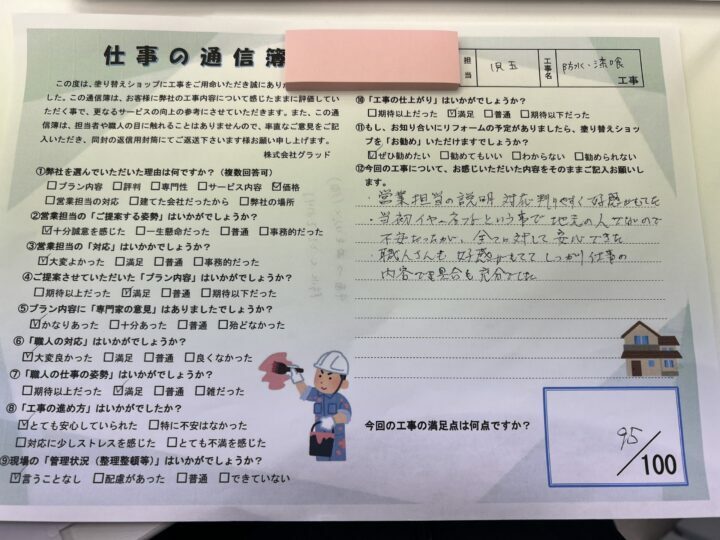 仕事の通信簿
この度は、塗り替えショップに工事をご用命いただき誠にありが
した。この通信簿は、お客様に弊社の工事内容について感じたままに評価してい
ただく事で、更なるサービスの向上の参考にさせていただきます。また、この通
信簿は、担当者や職人の目に触れることはありませんので、率直なご意見をご記
入いただき、同封の返信用封筒にてご返送下さいます様お願い申し上げます。
株式会社グラッド
①弊社を選んでいただいた理由は何ですか？（複数回答可）
□プラン内容 □評判 □専門性 □サービス内容 ☑価格
□営業担当の対応 □建てた会社だったから □弊社の場所
②営業担当の「ご提案する姿勢」はいかがでしょうか？
☑十分誠意を感じた □一生懸命だった □普通 □事務的だった
③営業担当の「対応」はいかかでしょうか？
☑大変よかった □満足 □普通 □事務的だった
④ご提案させていただいた「プラン内容」はいかがでしょうか？
□期待以上だった ☑満足 □普通 □期待以下だった
⑤プラン内容に「専門家の意見」はありましたでしょうか？
☑かなりあった □十分あった □普通 □殆どなかった
⑥「職人の対応」はいかがでしょうか？
☑大変良かった □満足 □普通 □良くなかった
⑦「職人の仕事の姿勢」はいかがでしょうか？
□期待以上だった ☑満足 □普通 □雑だった
⑧「工事の進め方」はいかがでしたか？
☑とても安心していられた □特に不安はなかった
□対応に少しストレスを感じた □とても不満を感じた
⑨現場の「管理状況（整理整頓等）」はいかがでしょうか？
☑言うことなし □配慮があった □普通 □できていない
担当 児玉 工事名 防水・漆喰 工事
⑩「工事の仕上がり」はいかがでしょうか？
□期待以上だった ☑満足 □普通 □期待以下だった
⑪もし、お知り合いにリフォームの予定がありましたら、塗り替えショッ
プを「お勧め」いただけますでしょうか？
☑ぜひ勧めたい □勧めてもいい □わからない □勧められない
⑫今回の工事について、お感じいただいた内容をそのままご記入お願いし
ます。
・営業担当の説明 対応 判りやすく 好感がもてた
・当初 という事で 地元の人でないので
不安だったが、全てに対して安心できた
・職人さんも 好感がもてて しっかり仕事の
内容 具合も充分でした
今回の工事の満足点は何点ですか？
95/100